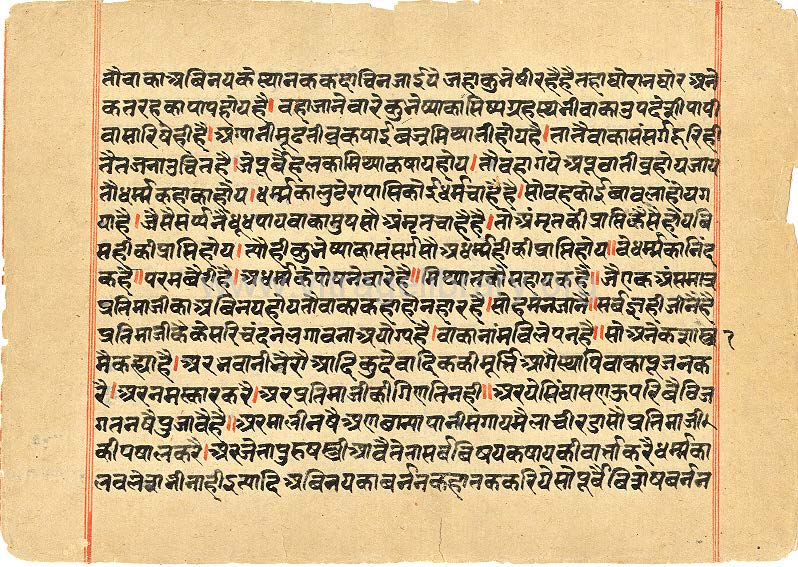 तौ वाका अबिनय के स्थानक कदाचि न जाईये जहा कुभेषी रहै है तहा घोरानघोर अने
क नरक का पाप होय है। बहा जानेवारे कुभेष्या का सिष्य ग्रहस्य भी वाका उपदेशी पापी
वा सारिषे ही है। अग्यानी मूढ तीव्र कषाई बज्र मिथ्याती होय है। तातै वाका संसर्ग दूरि ही
तै तजना उचित है। जे पूर्वै हलका मिथ्या कषाय होय। तौ वहा गये अपूर्वा तीव्र होय जाय
तौ धर्म्म कहा का होय। धर्म्म का लुटेरा पासि कोई धर्म चाहै है। सो वह कोई बावला होय ग
या है। जैसे सर्प्प नै दूध पाय वाका मुष सौ अंमृत चाहै है। तो अमृत की प्राप्ति कैसे होय बि
स ही की प्राप्ति होय। त्यौ ही कुभेष्या का संसर्ग सौ अधर्म्म ही की प्राप्ति होय॥ वे धर्म्म का निंद
क है॥ परम बैरी है। अधर्म्म के पोसनेवारे है॥ मिथ्यात के सहायक है॥ जे एक अंस मात्र
प्रतिमाजी का अबिनय होय तो वाका कहा होनहार है। सो हम न जाने॥ सर्वज्ञ ही जाने है
प्रतिमाजी कै केसरि चंदन लगावना अयोग्य है। वाका नांम बिलेपन है॥ सो अनेक शास्त्र
मै कह्या है। अर भवानी भैरौ आदि कुदेवादिक की मूर्ति आगै स्थापि वाका पूजन क
रै। अर नमस्कार करै। अर प्रतिमाजी की गिणति नही॥ अर ये सिंघासण ऊपरि बैठि ज
गत नषै पुजावै है॥ अर माली नषै अण छान्या पानी मगाय मैला चीरडा सौ प्रतिमाजी
की पषाल करै। अर जेता पुरुष स्त्री आवै तेता सर्व विषय कषाय की वार्त्ता करै धर्म्म का
लवलेश भी नाही इत्यादि अबिनय का बर्नन कहा तक करिये सो पूर्वै विशेष बर्नन